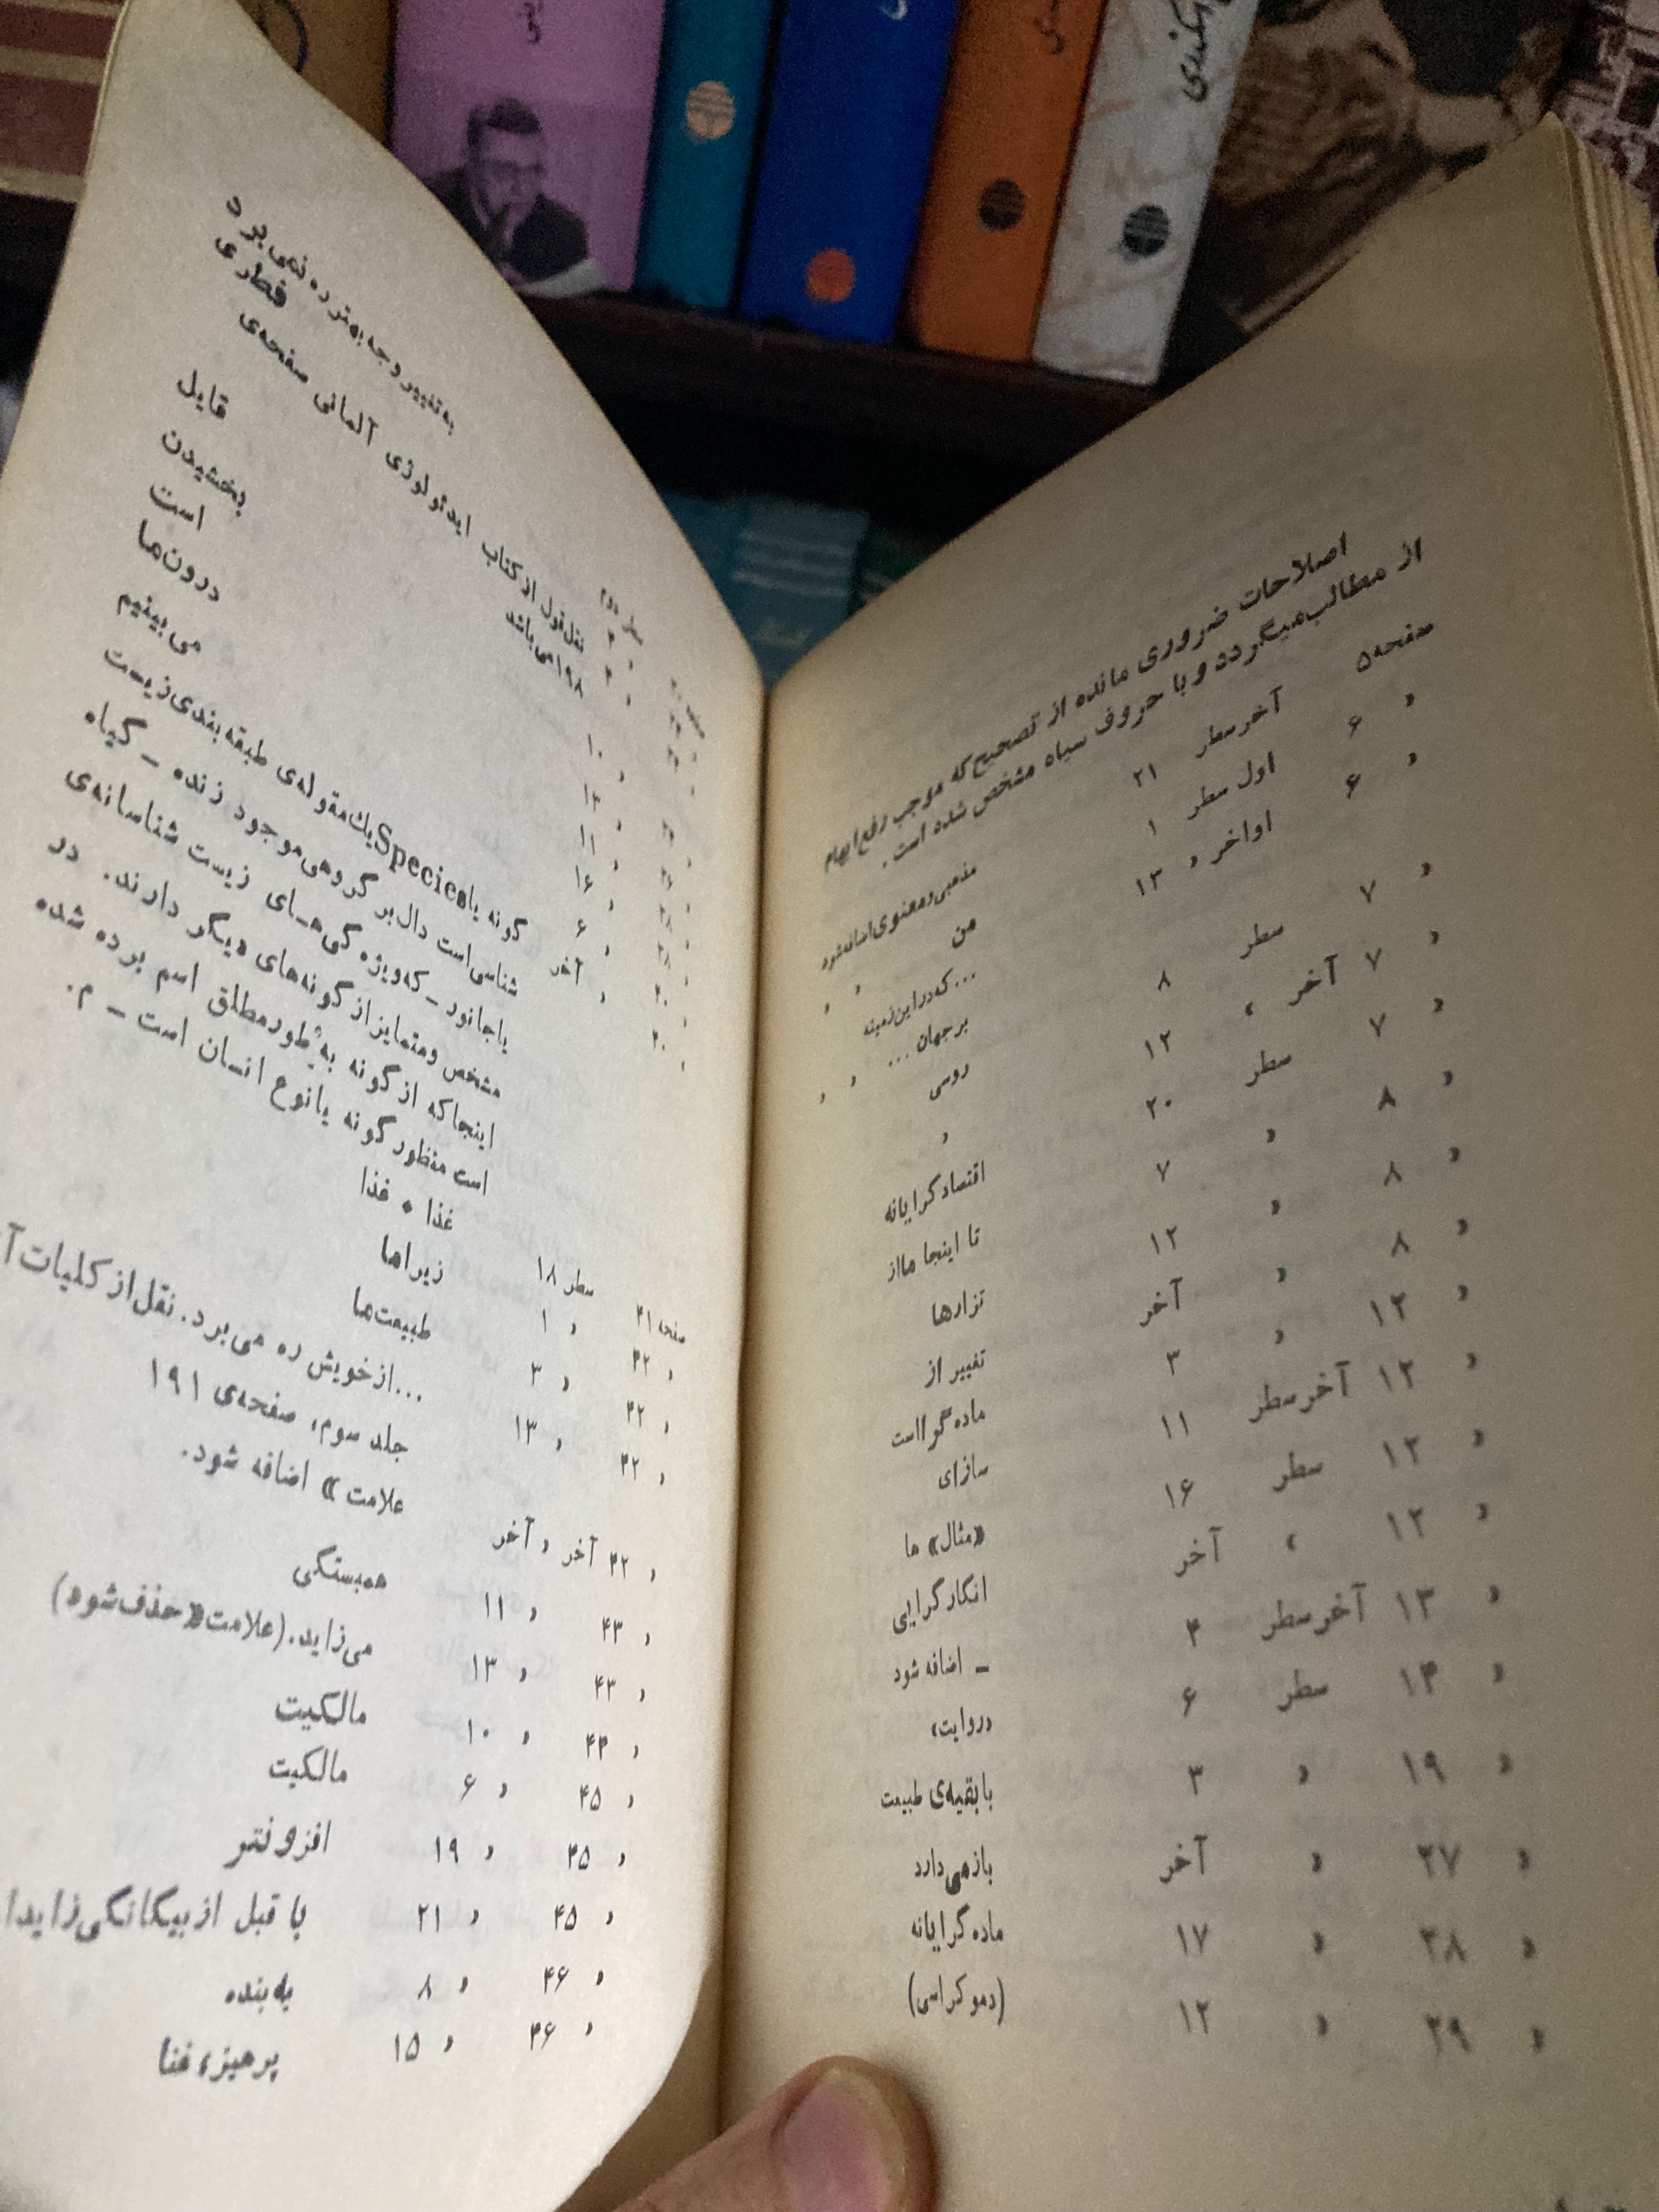 اصلاحات ضروری مانده از تصحیح که موجب رفع ابهام
از مطالب میگردد و با حروف سیاه مشخص شده است.
صفحه ۵ آخر سطر ۲۱ مذهبی و معنوی اضافه شود
» ۶ اول سطر ۱ من » »
» ۶ اواخر » ۱۳ ...که در این زمینه
بر جهان ... » »
» ۷ سطر ۸ روسی
» ۷ آخر » ۱۲ »
» ۷ سطر ۲۰ اقتصاد گرایانه
» ۸ » ۷ تا اینجا ما از
» ۸ » ۱۲ تزارها
» ۸ » آخر تغییر از
» ۱۲ » ۳ ماده گرا است
» ۱۲ آخر سطر ۱۱ سازای
» ۱۲ سطر ۱۶ «مثال» ها
» ۱۲ » آخر انگار گرایی
» ۱۳ آخر سطر ۴ – اضافه شود
» ۱۴ سطر ۶ «روایت»
» ۱۹ » ۳ با بقیه‌ی طبیعت
» ۲۷ » آخر باز می‌دارد
» ۲۸ » ۱۷ ماده گرایانه
» ۲۹ » ۱۲ (دموکراسی)
به تغییر وجه بهتر ره نمی‌برد
فطری
نقل قول از کتاب ایدئولوژی آلمانی صفحه‌ی
۱۹۸ می‌باشد
» ۱۰ قایل
» ۱۳ بخشیدن
» ۱۱ است
» ۱۶ درون‌ها
» ۶ می‌بینیم
» آخر گونه یا Species یک مقوله‌ی طبقه بندی زیست
شناسی است دال بر گروهی موجود زنده – گیاه
یا جانور – که ویژه گی هـای زیست شناسانه‌ی
مشخص و متمایز از گونه‌های دیگر دارند. در
اینجا که از گونه به طور مطلق اسم برده شده
است منظور گونه یا نوع انسان است – م.
صفحه ۴۱ سطر ۱۸ غذا • غذا
» ۴۲ » ۱ زیراها
» ۴۲ » ۳ طبیعت‌ها
» ۴۲ » ۱۳ ...از خویش ره می‌برد. نقل از کلیات
جلد سوم، صفحه‌ی ۱۹۱
» ۴۲ آخر » آخر علامت » اضافه شود.
» ۴۳ » ۱۱ همبستگی
» ۴۳ » ۱۳ می‌زاید. (علامت « حذف شود)
» ۴۴ » ۱۰ مالکیت
» ۴۵ » ۶ مالکیت
» ۴۵ » ۱۹ افزونتر
» ۴۵ » ۲۱ با قبل از بیگانگی زاید
» ۴۶ » ۸ به بنده
» ۴۶ » ۱۵ پرهیز، غنا